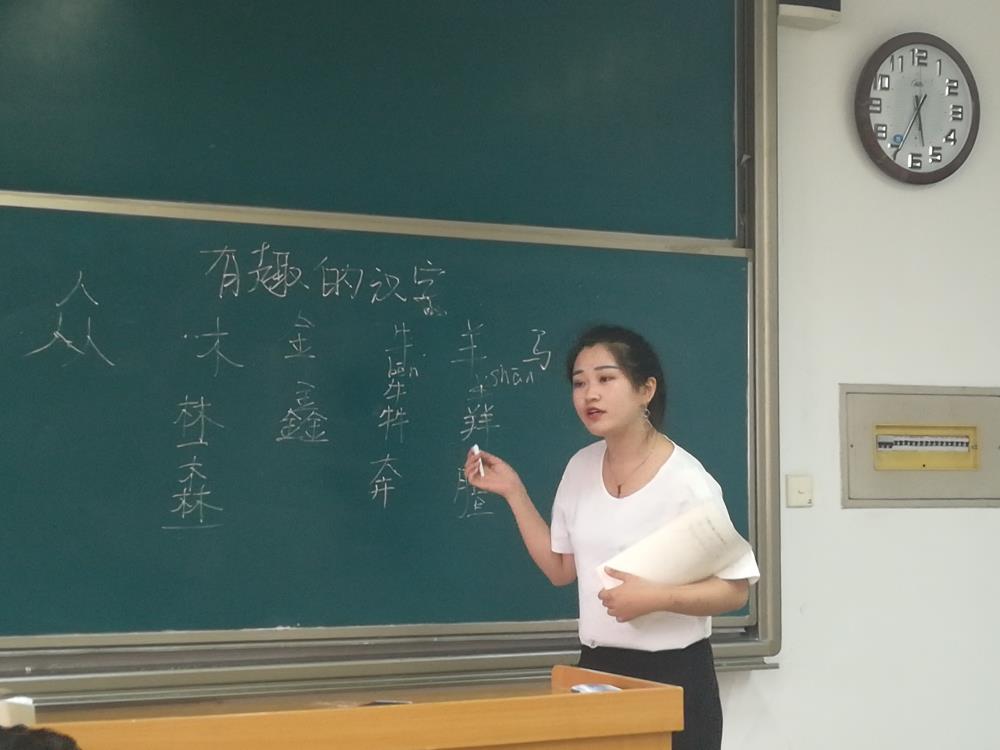 有趣的识字
众
木 金 牛 羊 马
bēn shān
林 鑫 犇 羴
森 奔 膻
12 1 2 3 4 5 6 7 8 9 10 11